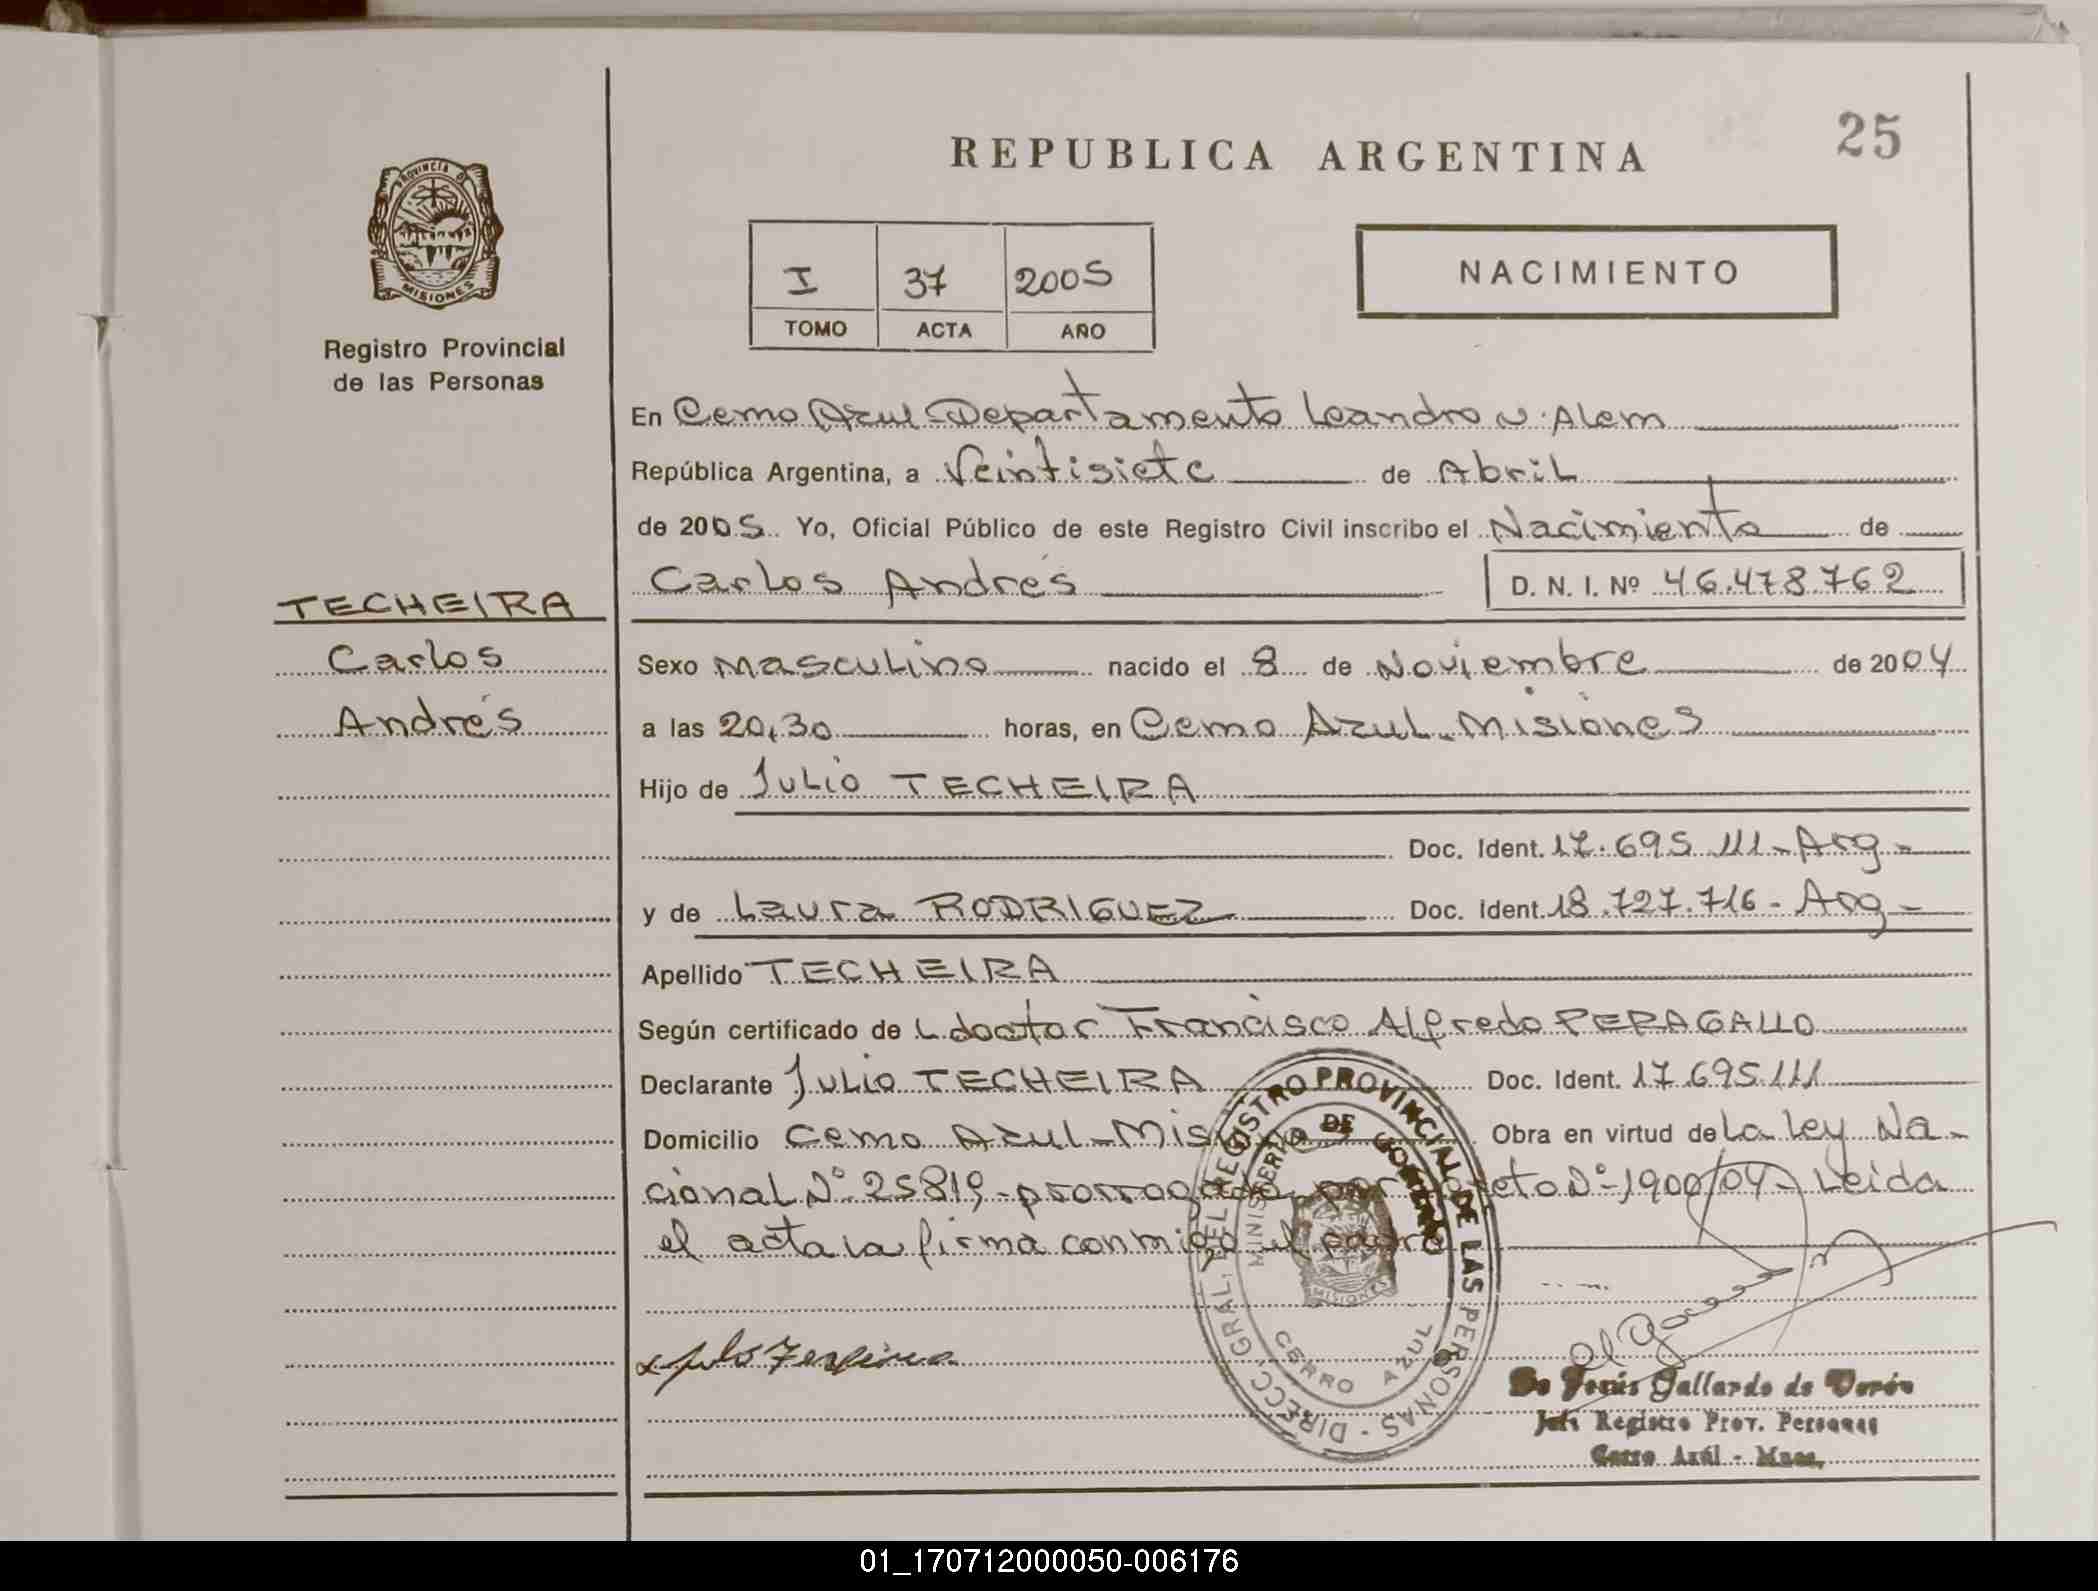 REPUBLICA ARGENTINA
25
PROVINCIA DE
MISIONES
Registro Provincial
de las Personas
I 37 2005
TOMO ACTA AÑO
NACIMIENTO
En Cerro Azul-Departamento Leandro N. Alem
República Argentina, a Veintisiete de Abril
de 2005. Yo, Oficial Público de este Registro Civil inscribo el Nacimiento de
Carlos Andrés D. N. I. Nº 46.478.762
TECHEIRA
Carlos
Andrés
Sexo Masculino nacido el 8 de Noviembre de 2004
a las 20,30 horas, en Cerro Azul-Misiones
Hijo de Julio TECHEIRA
Doc. Ident. 17.695.111-Arg-
y de Laura RODRIGUEZ Doc. Ident. 18.727.716-Arg-
Apellido TECHEIRA
Según certificado de L doctor Francisco Alfredo PERAGALLO
Declarante Julio TECHEIRA Doc. Ident. 17.695.111
Domicilio Cerro Azul-Misiones Obra en virtud de La Ley Na-
cional Nº 25819-prorrogada por Decreto Nº 1900/04-Leida
el acta la firma conmigo el padre
DIRECC. GRAL. DEL REGISTRO PROVINCIAL DE LAS PERSONAS -
MINISTERIO DE GOBIERNO
MISIONES
CERRO AZUL
Jesús Gallardo de Verón
Jefe Registro Prov. Personas
Cerro Azúl - Mnes.
01_170712000050-006176